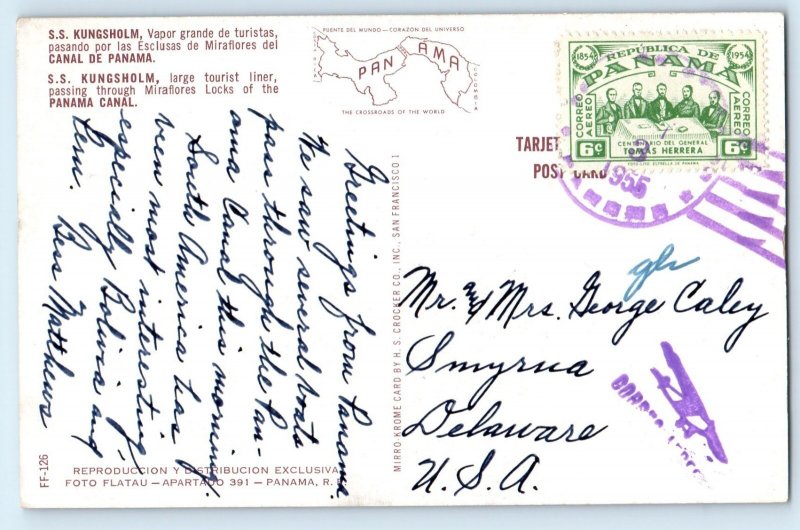 S.S. KUNGSHOLM, Vapor grande de turistas,
pasando por las Esclusas de Miraflores del
CANAL DE PANAMA.
S.S. KUNGSHOLM, large tourist liner,
passing through Miraflores Locks of the
PANAMA CANAL.
PUENTE DEL MUNDO — CORAZON DEL UNIVERSO
PANAMA
THE CROSSROADS OF THE WORLD
1854 1954
REPÚBLICA DE
PANAMA
CORREO AEREO
CORREO AEREO
CENTENARIO DEL GENERAL
TOMAS HERRERA
6c 6c
TARJET
POST CARD
1955
Greetings from Panama.
We saw several boats
pass through the Pan-
ama Canal this morning.
South America has
been most interesting,
especially Bolivia and
Peru.
Bess Matthews
MIRRO-KROME CARD BY H. S. CROCKER CO., INC., SAN FRANCISCO 1
Mr. and Mrs. George Caley
Smyrna
Delaware
U.S.A.
CORREO AEREO
FF-126
REPRODUCCION Y DISTRIBUCION EXCLUSIVA
FOTO FLATAU — APARTADO 391 — PANAMA, R. P.